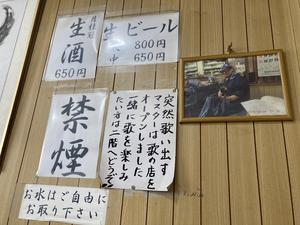 月桂冠
生酒
650円
生ビール
大 800円
中 650円
禁煙
突然歌い出す
マスターは歌の店を
オープンしました
一緒に歌を楽しみ
たい方は二階へどうぞ
お水はご自由に
お取り下さい